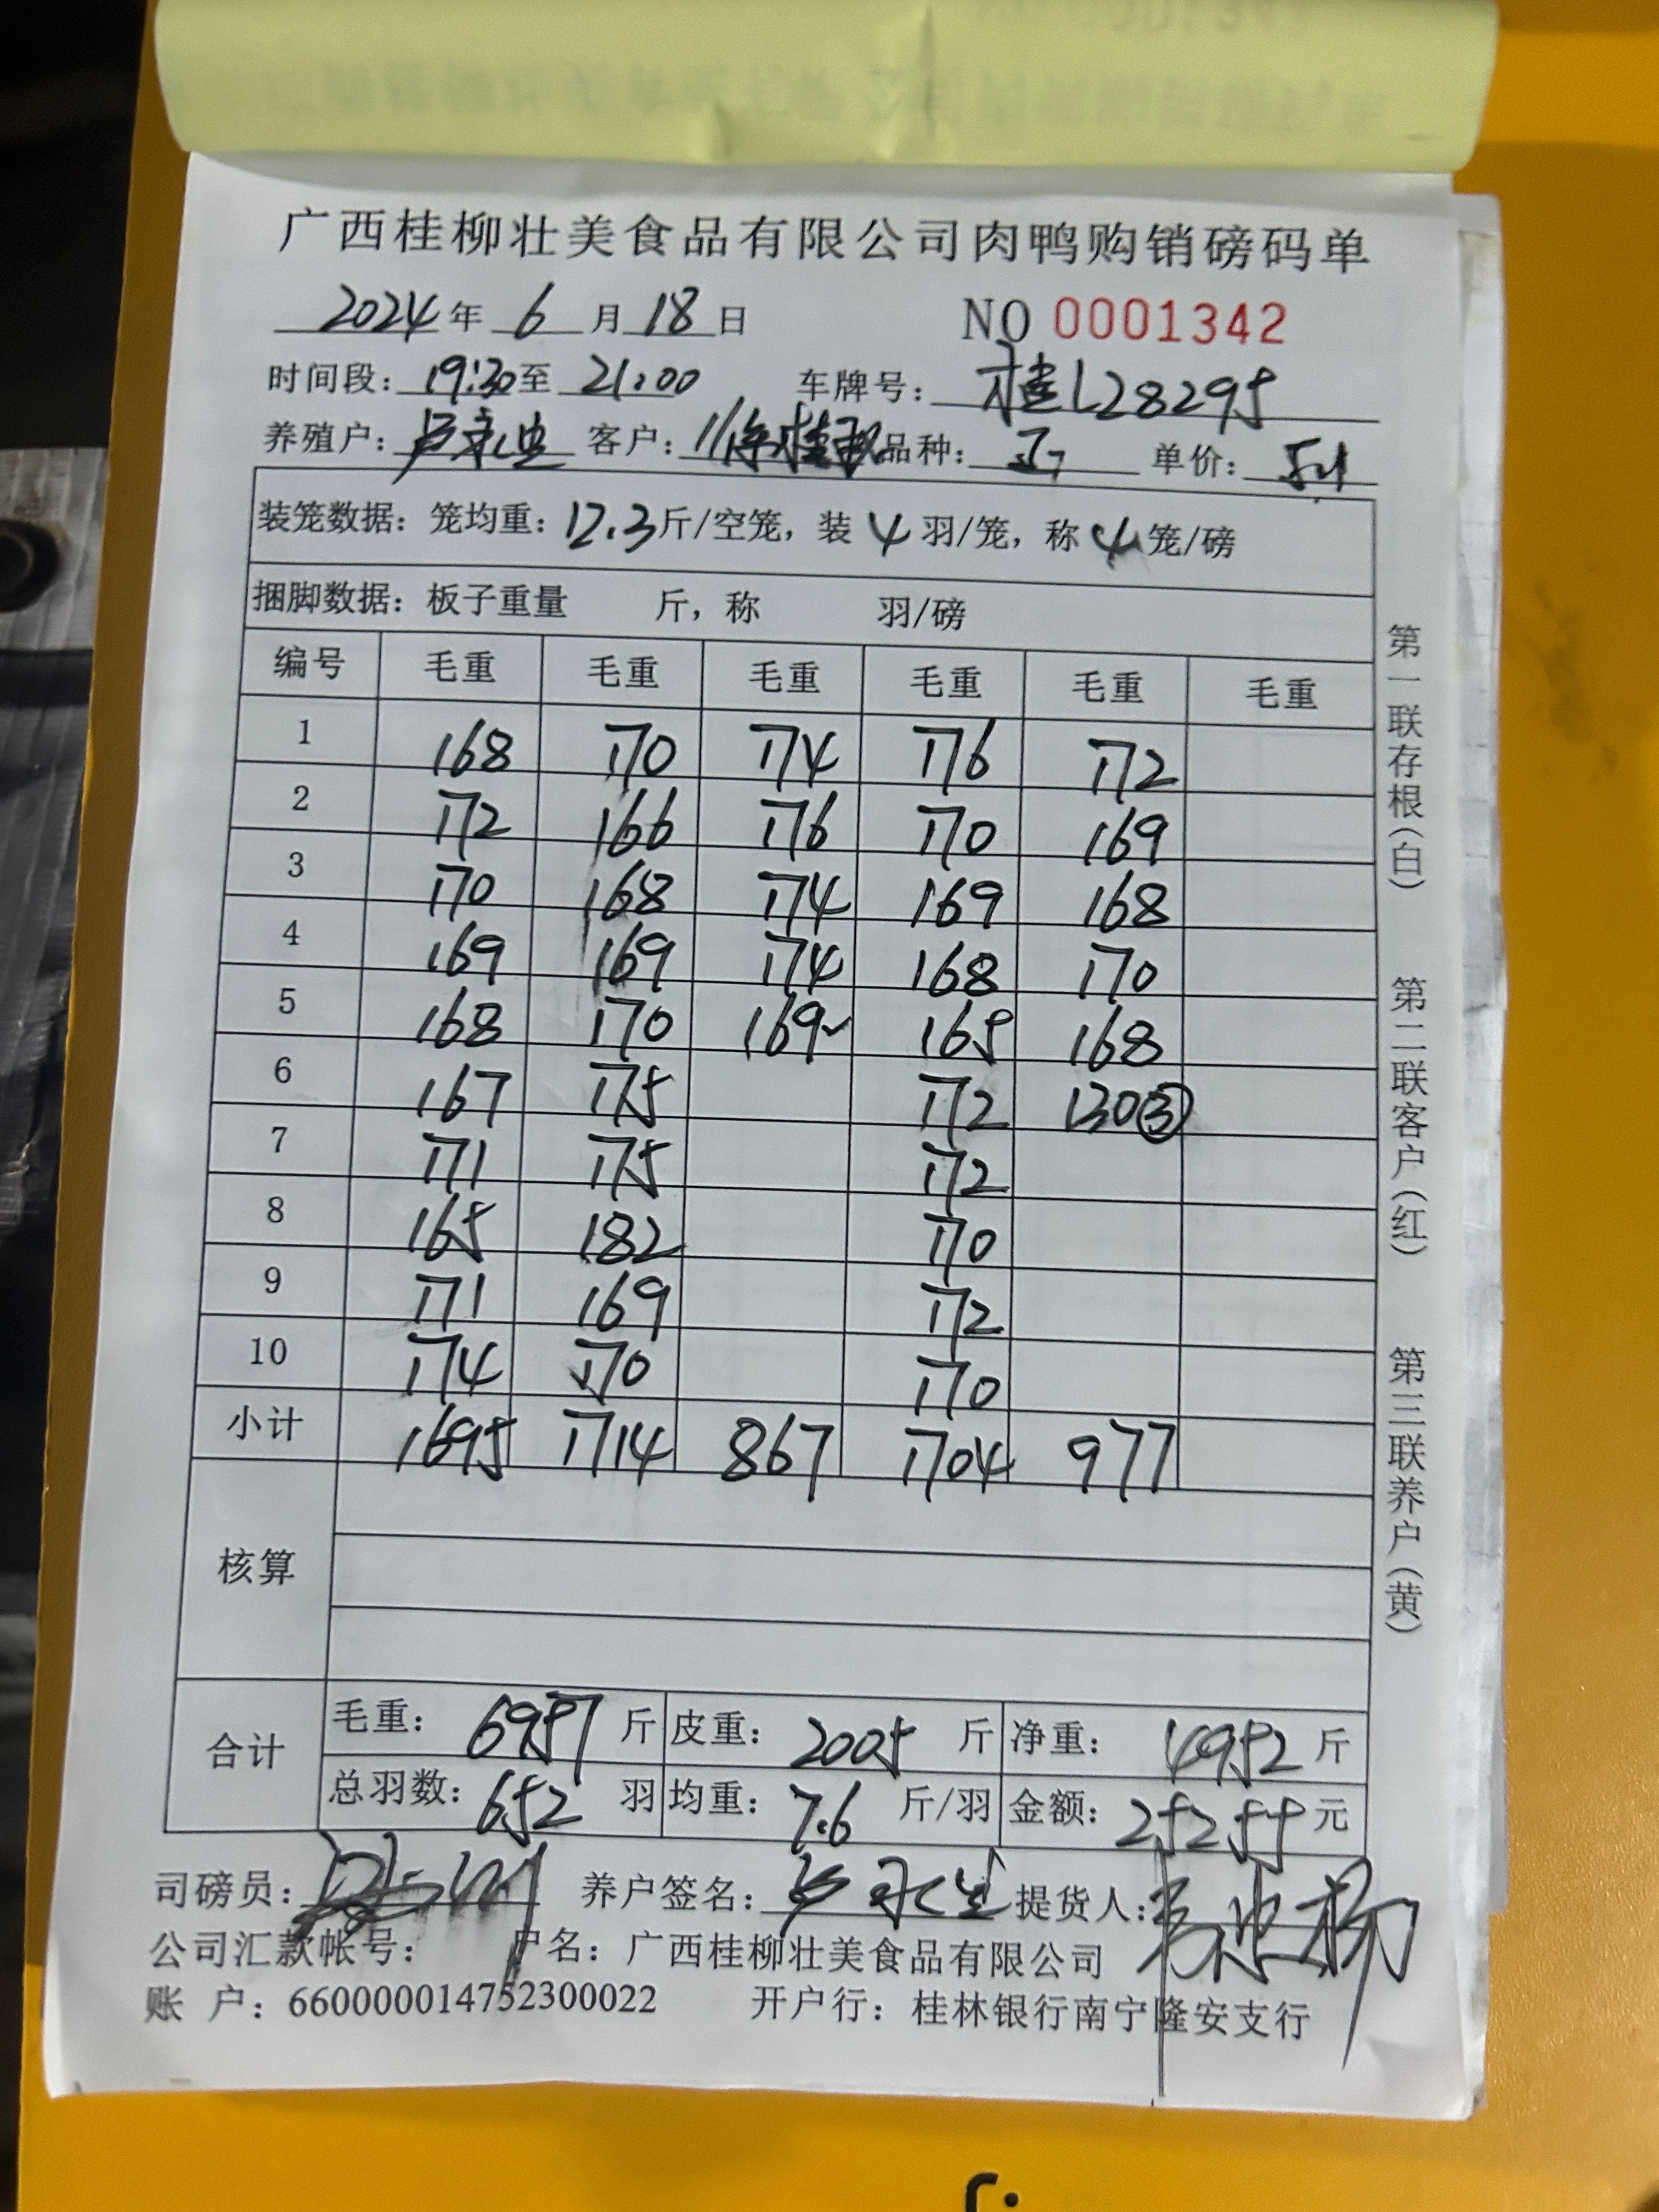 广西桂柳壮美食品有限公司肉鸭购销磅码单
2024年 6 月 18 日 NO 0001342
时间段：19:30至 21:00 车牌号：桂L28295
养殖户：卢永生 客户：徐桂 品种： 单价：5.1
装笼数据：笼均重：12.3斤/空笼，装 4 羽/笼，称 4 笼/磅
捆脚数据：板子重量 斤，称 羽/磅
编号 毛重 毛重 毛重 毛重 毛重 毛重
1 168 170 174 176 172
2 172 166 176 170 169
3 170 168 174 169 168
4 169 169 174 168 170
5 168 170 169 165 168
6 167 175 172 130③
7 171 175 172
8 165 182 170
9 171 169 172
10 174 170 170
小计 1695 1714 867 1704 977
核算
合计
毛重：6957 斤 皮重：2005 斤 净重：4952 斤
总羽数：652 羽 均重：7.6 斤/羽 金额：25255 元
司磅员： 养户签名：卢永生 提货人：
公司汇款帐号： 户名：广西桂柳壮美食品有限公司
账 户：660000014752300022 开户行：桂林银行南宁隆安支行
第一联存根（白） 第二联客户（红） 第三联养户（黄）